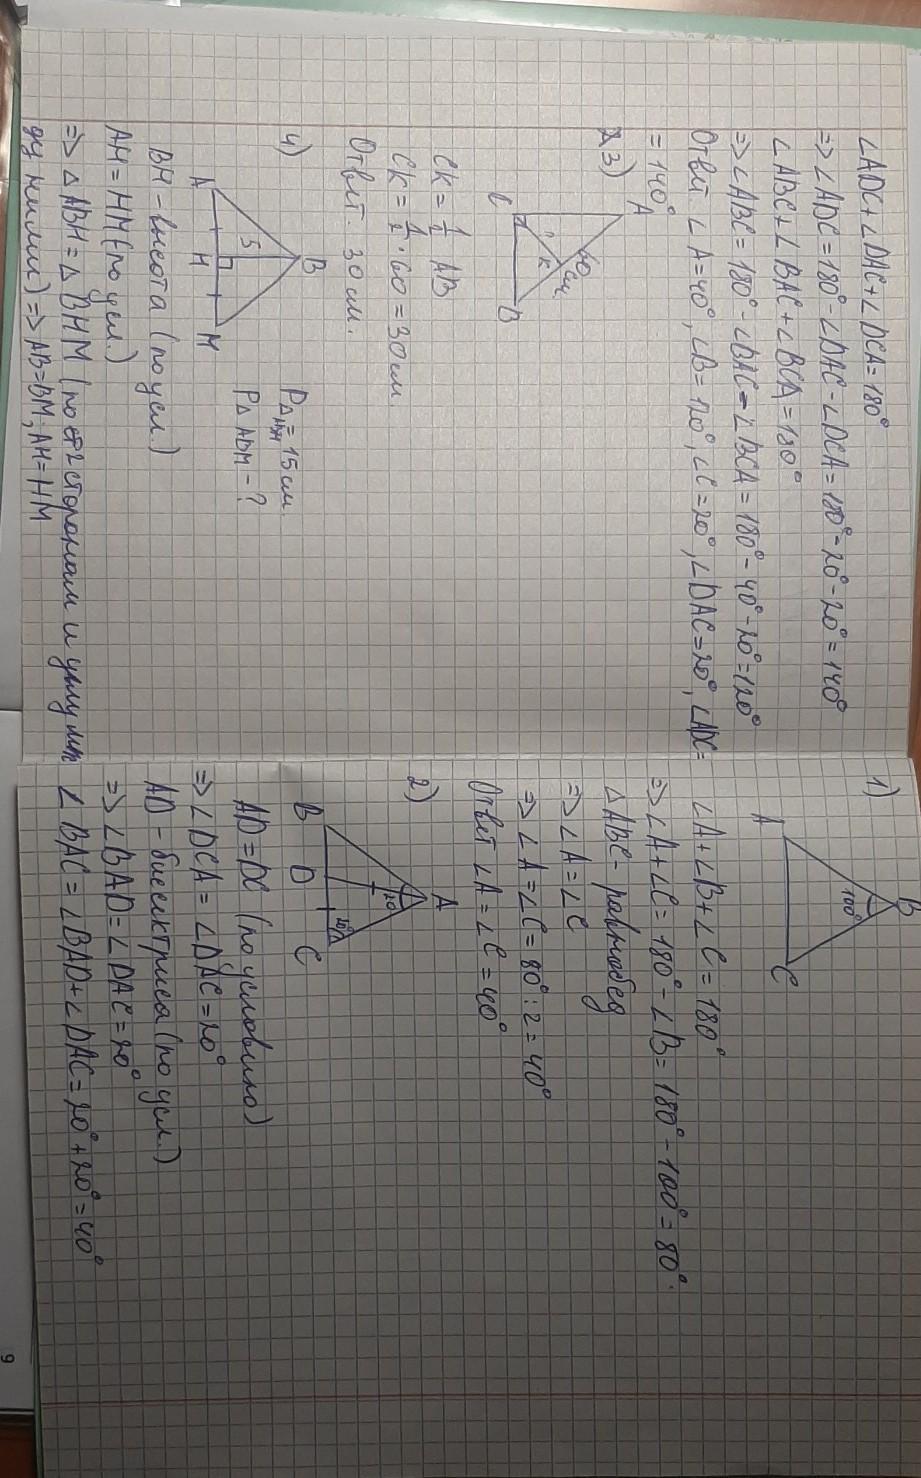 1)
B
100°
A
C
∠A+∠B+∠C=180°
=> ∠A+∠C=180°-∠B=180°-100°=80°.
△ABC- равнобед
=> ∠A=∠C
=> ∠A=∠C=80°:2=40°
Ответ ∠A=∠C=40°
2)
A
20°
20°
B D C
AD=DC (по условию)
=> ∠DCA=∠DAC=20°
AD-биссектриса (по усл.)
=> ∠BAD=∠DAC=20°
∠BAC=∠BAD+∠DAC=20°+20°=40°
∠ADC+∠DAC+∠DCA=180°
=> ∠ADC=180°-∠DAC-∠DCA=180°-20°-20°=140°
∠ABC+∠BAC+∠BCA=180°
=> ∠ABC=180°-∠BAC-∠BCA=180°-40°-20°=120°
Ответ. ∠A=40°, ∠B=120°, ∠C=20°, ∠DAC=20°, ∠ADC=
=140°
3)
A
60см
K
C
B
CK=1/2 AB
CK=1/2·60=30см.
Ответ. 30см.
4)
B
5
A H M
P△ =15см.
P△ -?
BH-высота (по усл.)
AH=HM (по усл.)
=> △ABH=△BHM (по 2 сторонам и углу м
ду ними) => AB=BM; AH=HM
9